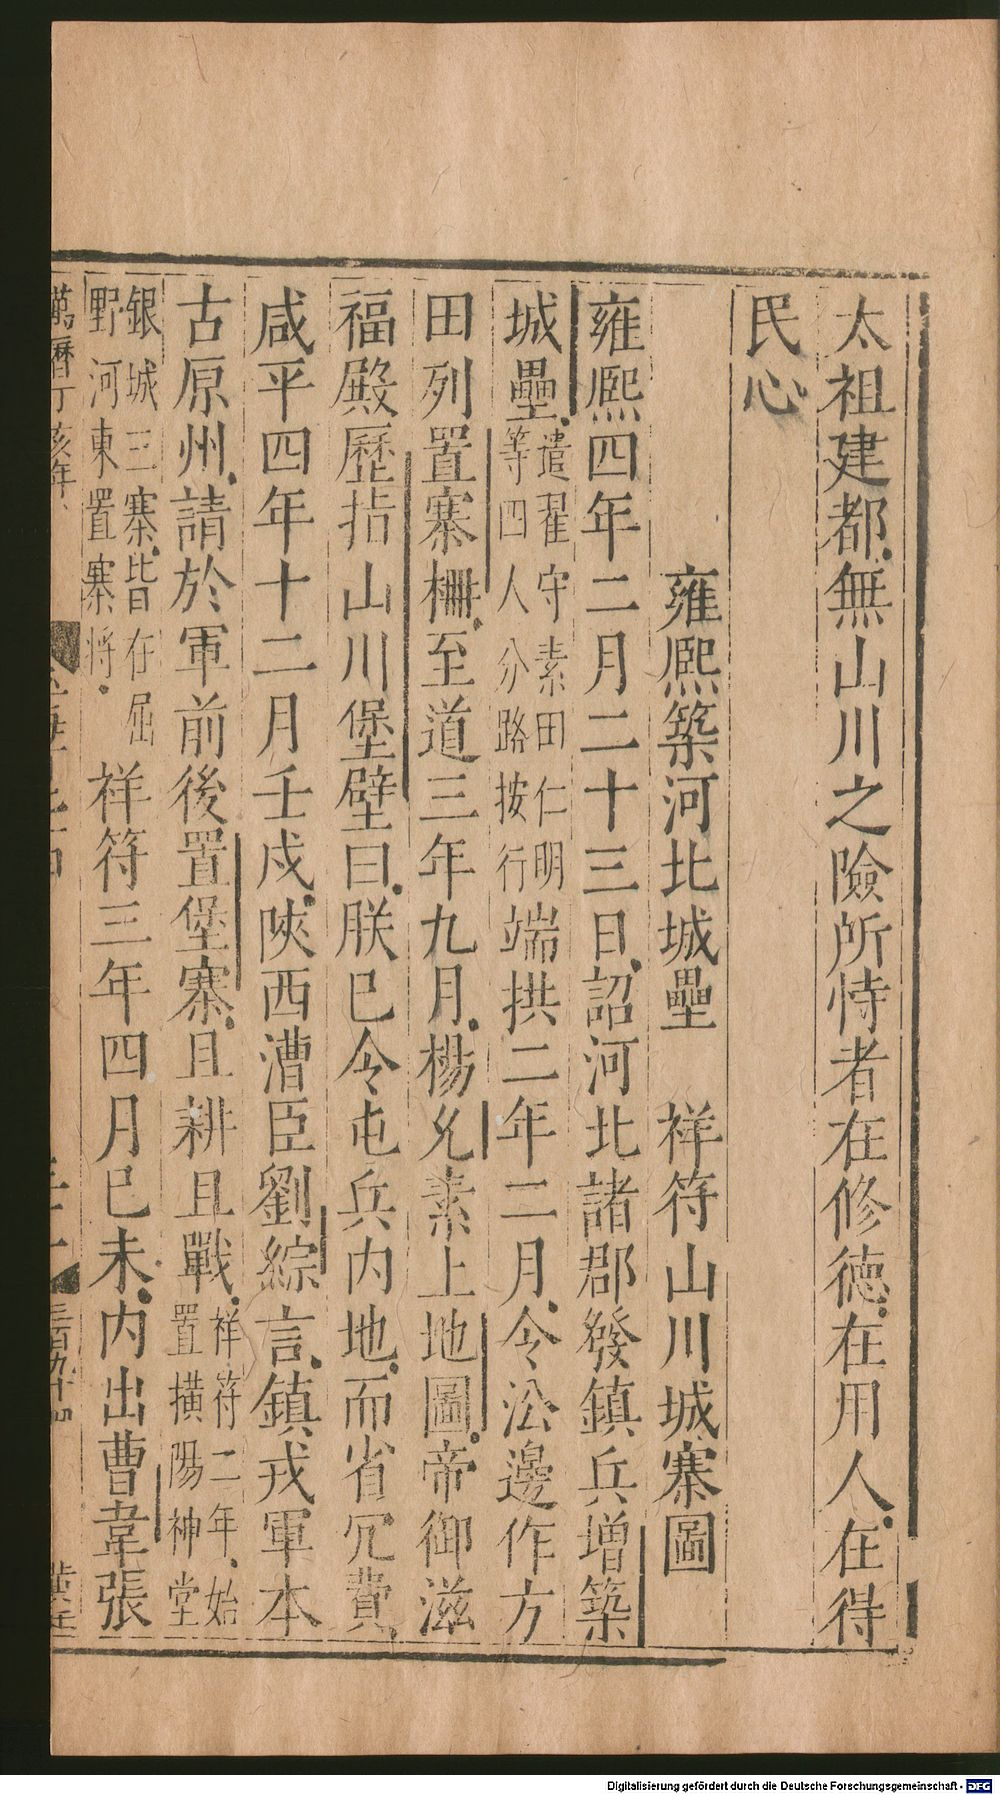 太祖建都無山川之險所恃者在修德在用人在得
民心
雍熙築河北城壘　祥符山川城寨圖
雍熙四年二月二十三日詔河北諸郡發鎮兵增築
城壘遣翟守素田仁明等四人分路按行端拱二年二月令㳂邊作方
田列置寨柵至道三年九月楊允素上地圖帝御滋
福殿歷指山川堡壁曰朕已令屯兵内地而省冗費
咸平四年十二月壬戌陝西漕臣劉綜言鎮戎軍本
古原州請於軍前後置堡寨且耕且戰祥符二年始置横陽神堂
銀城三寨皆在屈野河東置寨將祥符三年四月已未内出曹韋張
萬曆丁亥年
三百九十四
Digitalisierung gefördert durch die Deutsche Forschungsgemeinschaft - DFG